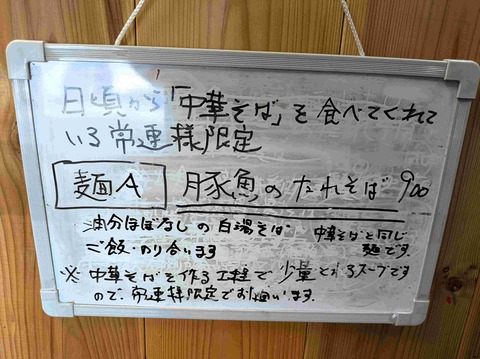 日頃から「中華そば」を食べてくれて
いる常連様限定
麺A 豚魚のたれそば 900
油分ほぼなしの白湯そば 中華そばと同じ
ご飯・のり合います 麺です。
※中華そばを作る工程で少量とれるスープです
ので、常連様限定でお願いします。